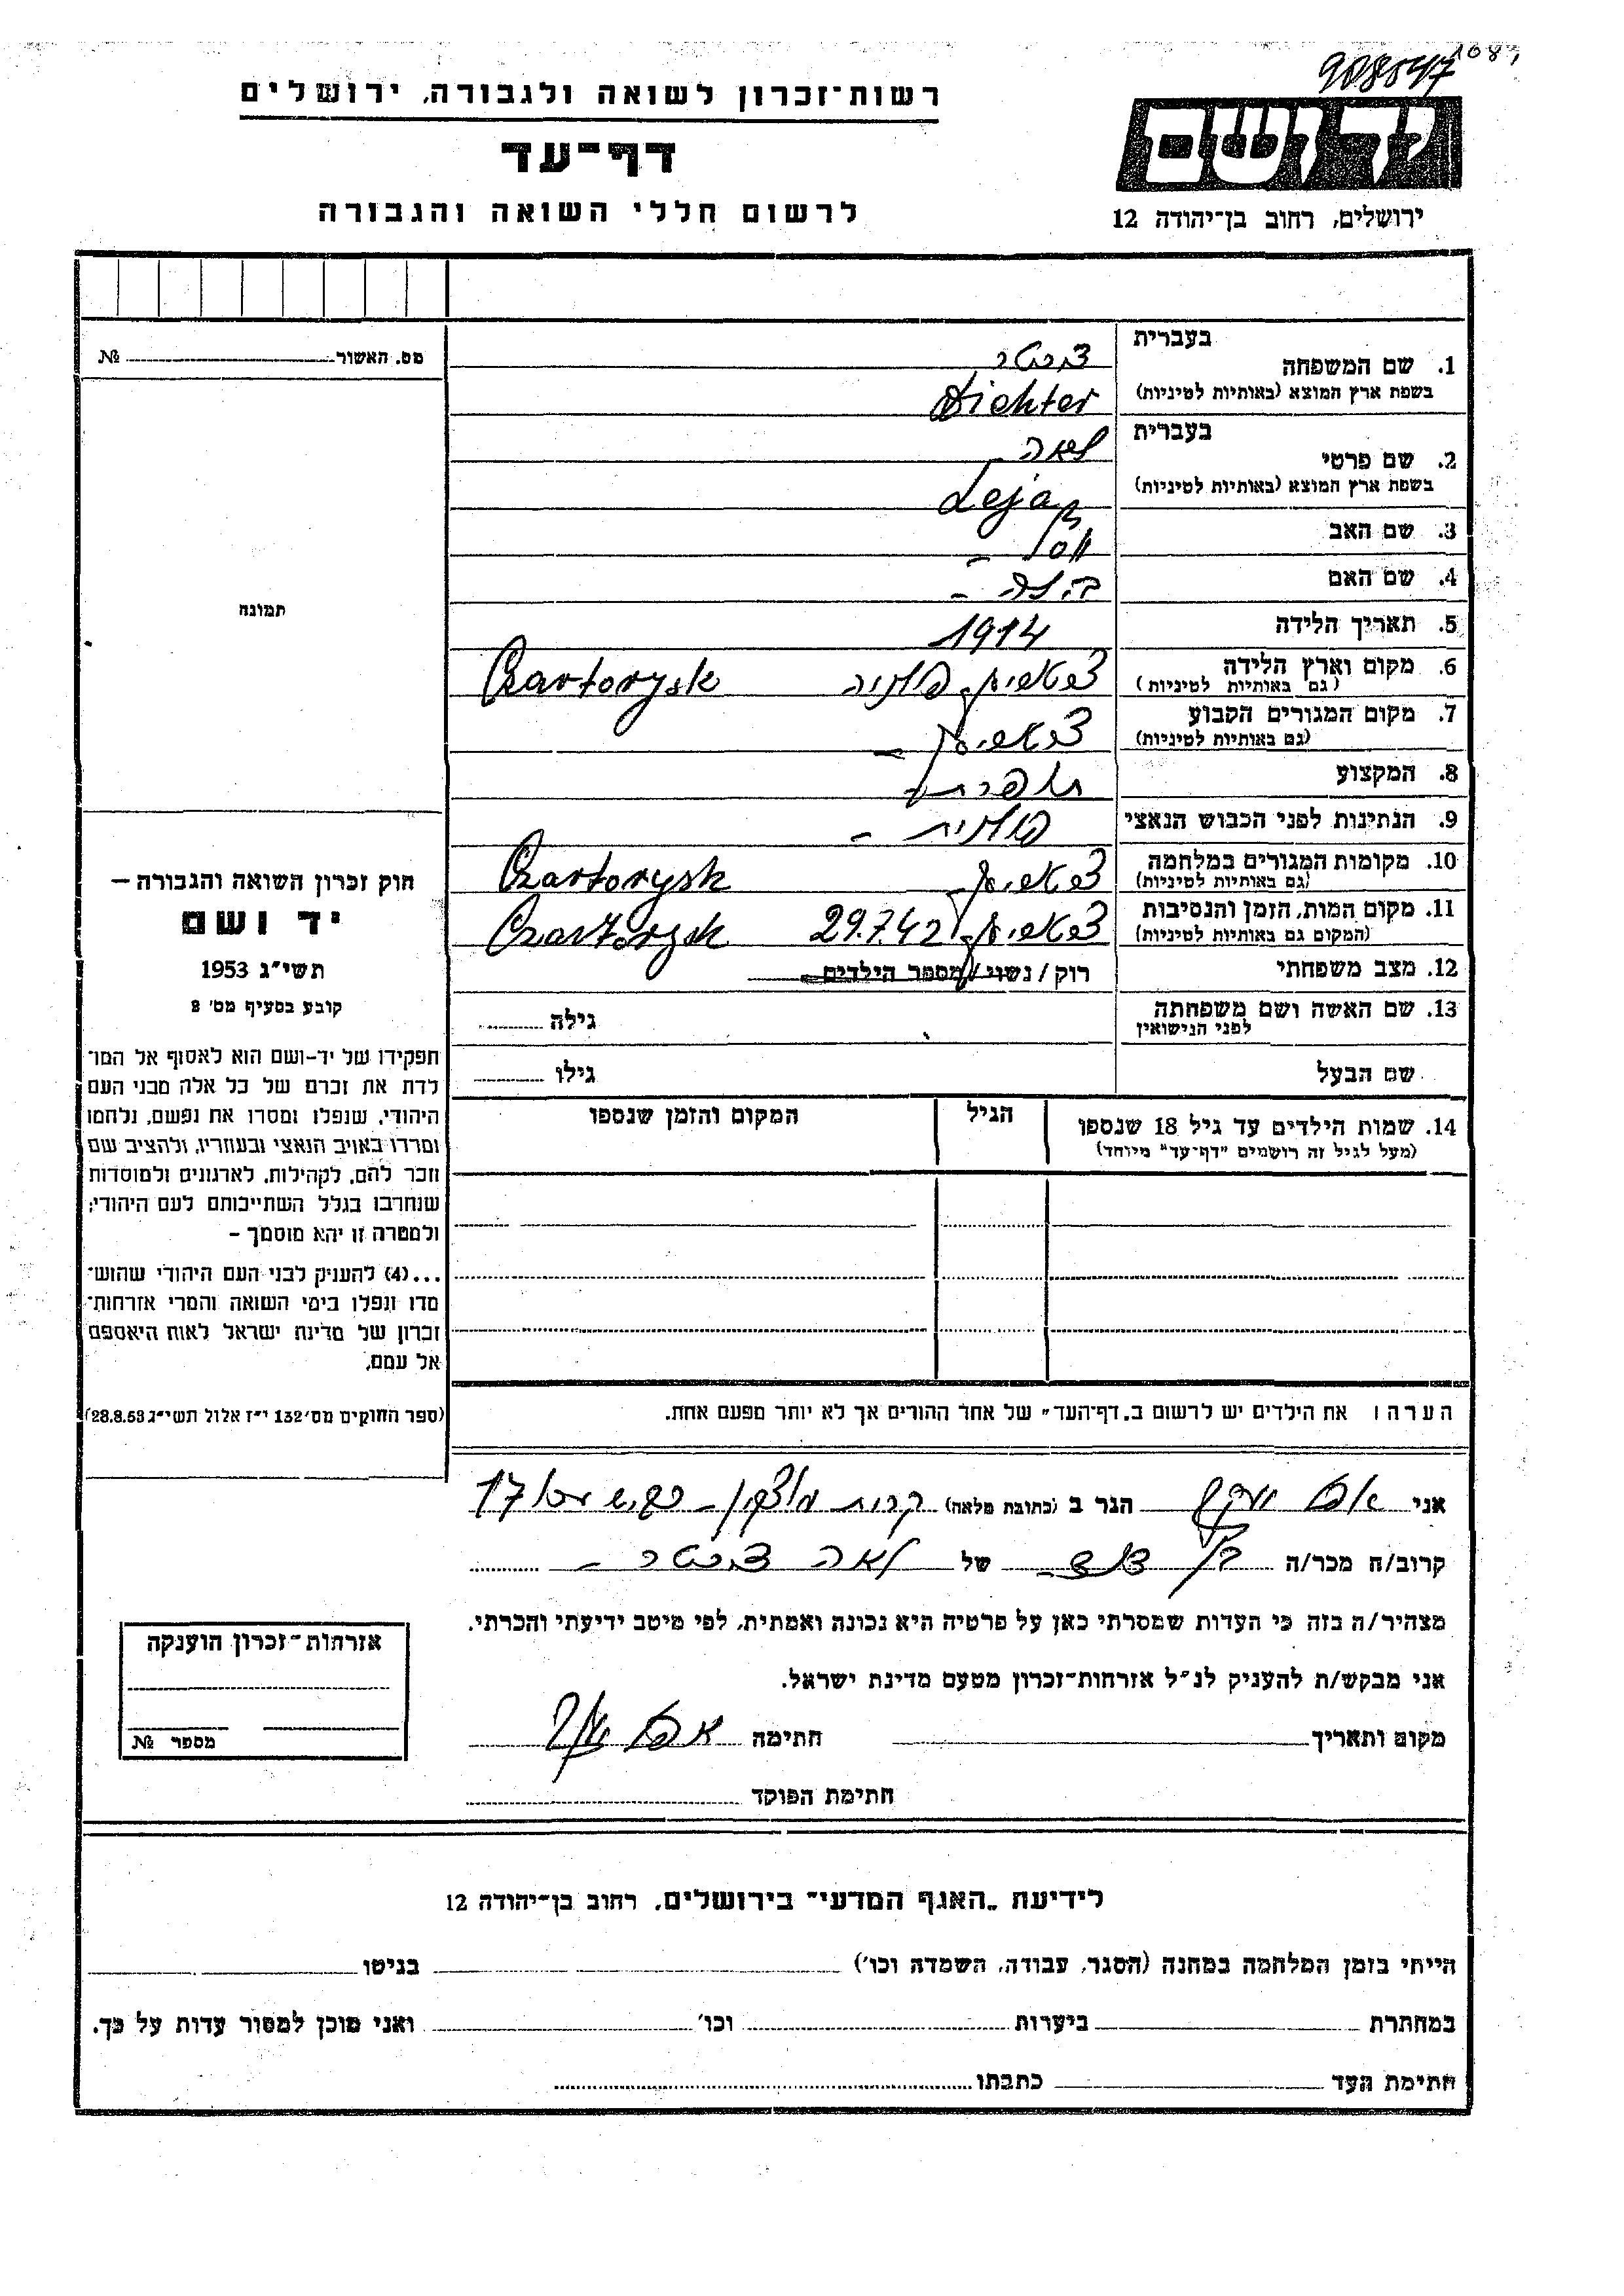 908547
1087
רשות־זכרון לשואה ולגבורה, ירושלים
דף־עד
לרשום חללי השואה והגבורה
יד ושם
ירושלים, רחוב בן־יהודה 12
מס. האשור №
תמונה
בעברית
1. שם המשפחה דיכטר
(בשפת ארץ המוצא (באותיות לטיניות Dichter
בעברית
2. שם פרטי לאה
(בשפת ארץ המוצא (באותיות לטיניות Leja
3. שם האב
4. שם האם
5. תאריך הלידה 1914
6. מקום וארץ הלידה פולניה Czartorysk
(גם באותיות לטיניות)
7. מקום המגורים הקבוע
(גם באותיות לטיניות)
8. המקצוע תופרת
9. הנתינות לפני הכבוש הנאצי פולנית –
10. מקומות המגורים במלחמה Czartorysk
(גם באותיות לטיניות)
11. מקום המות, הזמן והנסיבות 29.7.42 Czartorysk
(המקום גם באותיות לטיניות)
12. מצב משפחתי רוק / נשוי / מספר הילדים
13. שם האשה ושם משפחתה גילה
לפני הנישואין
שם הבעל גילו
14. שמות הילדים עד גיל 18 שנספו הגיל המקום והזמן שנספו
(מעל לגיל זה רושמים "דף־עד" מיוחד)
חוק זכרון השואה והגבורה –
יד ושם
תשי"ג 1953
קובע בסעיף מס' 2
תפקידו של יד-ושם הוא לאסוף אל המו־
לדת את זכרם של כל אלה מבני העם
היהודי, שנפלו ומסרו את נפשם, נלחמו
ומרדו באויב הנאצי ובעוזריו, ולהציב שם
וזכר להם, לקהילות, לארגונים ולמוסדות
שנחרבו בגלל השתייכותם לעם היהודי;
ולמטרה זו יהא מוסמך –
...(4) להעניק לבני העם היהודי שהוש־
מדו ונפלו בימי השואה והמרי אזרחות־
זכרון של מדינת ישראל לאות היאספם
אל עמם.
(ספר החוקים מס' 132 י"ז אלול תשי"ג 28.8.53)
הערה: את הילדים יש לרשום ב„דף־העד" של אחד ההורים אך לא יותר מפעם אחת.
אני הגר ב (כתובת מלאה) קרית מוצקין – 17
קרוב/ה מכר/ה בן דוד – של לאה דיכטר –
מצהיר/ה בזה כי העדות שמסרתי כאן על פרטיה היא נכונה ואמתית, לפי מיטב ידיעתי והכרתי.
אני מבקש/ת להעניק לנ"ל אזרחות־זכרון מטעם מדינת ישראל.
מקום ותאריך חתימה
חתימת הפוקד
אזרחות־זכרון הוענקה
מספר №
לידיעת „האגף המדעי" בירושלים, רחוב בן־יהודה 12
הייתי בזמן המלחמה במחנה (הסגר, עבודה, השמדה וכו') בגיטו
במחתרת ביערות וכו' ואני מוכן למסור עדות על כך.
חתימת העד כתבתו